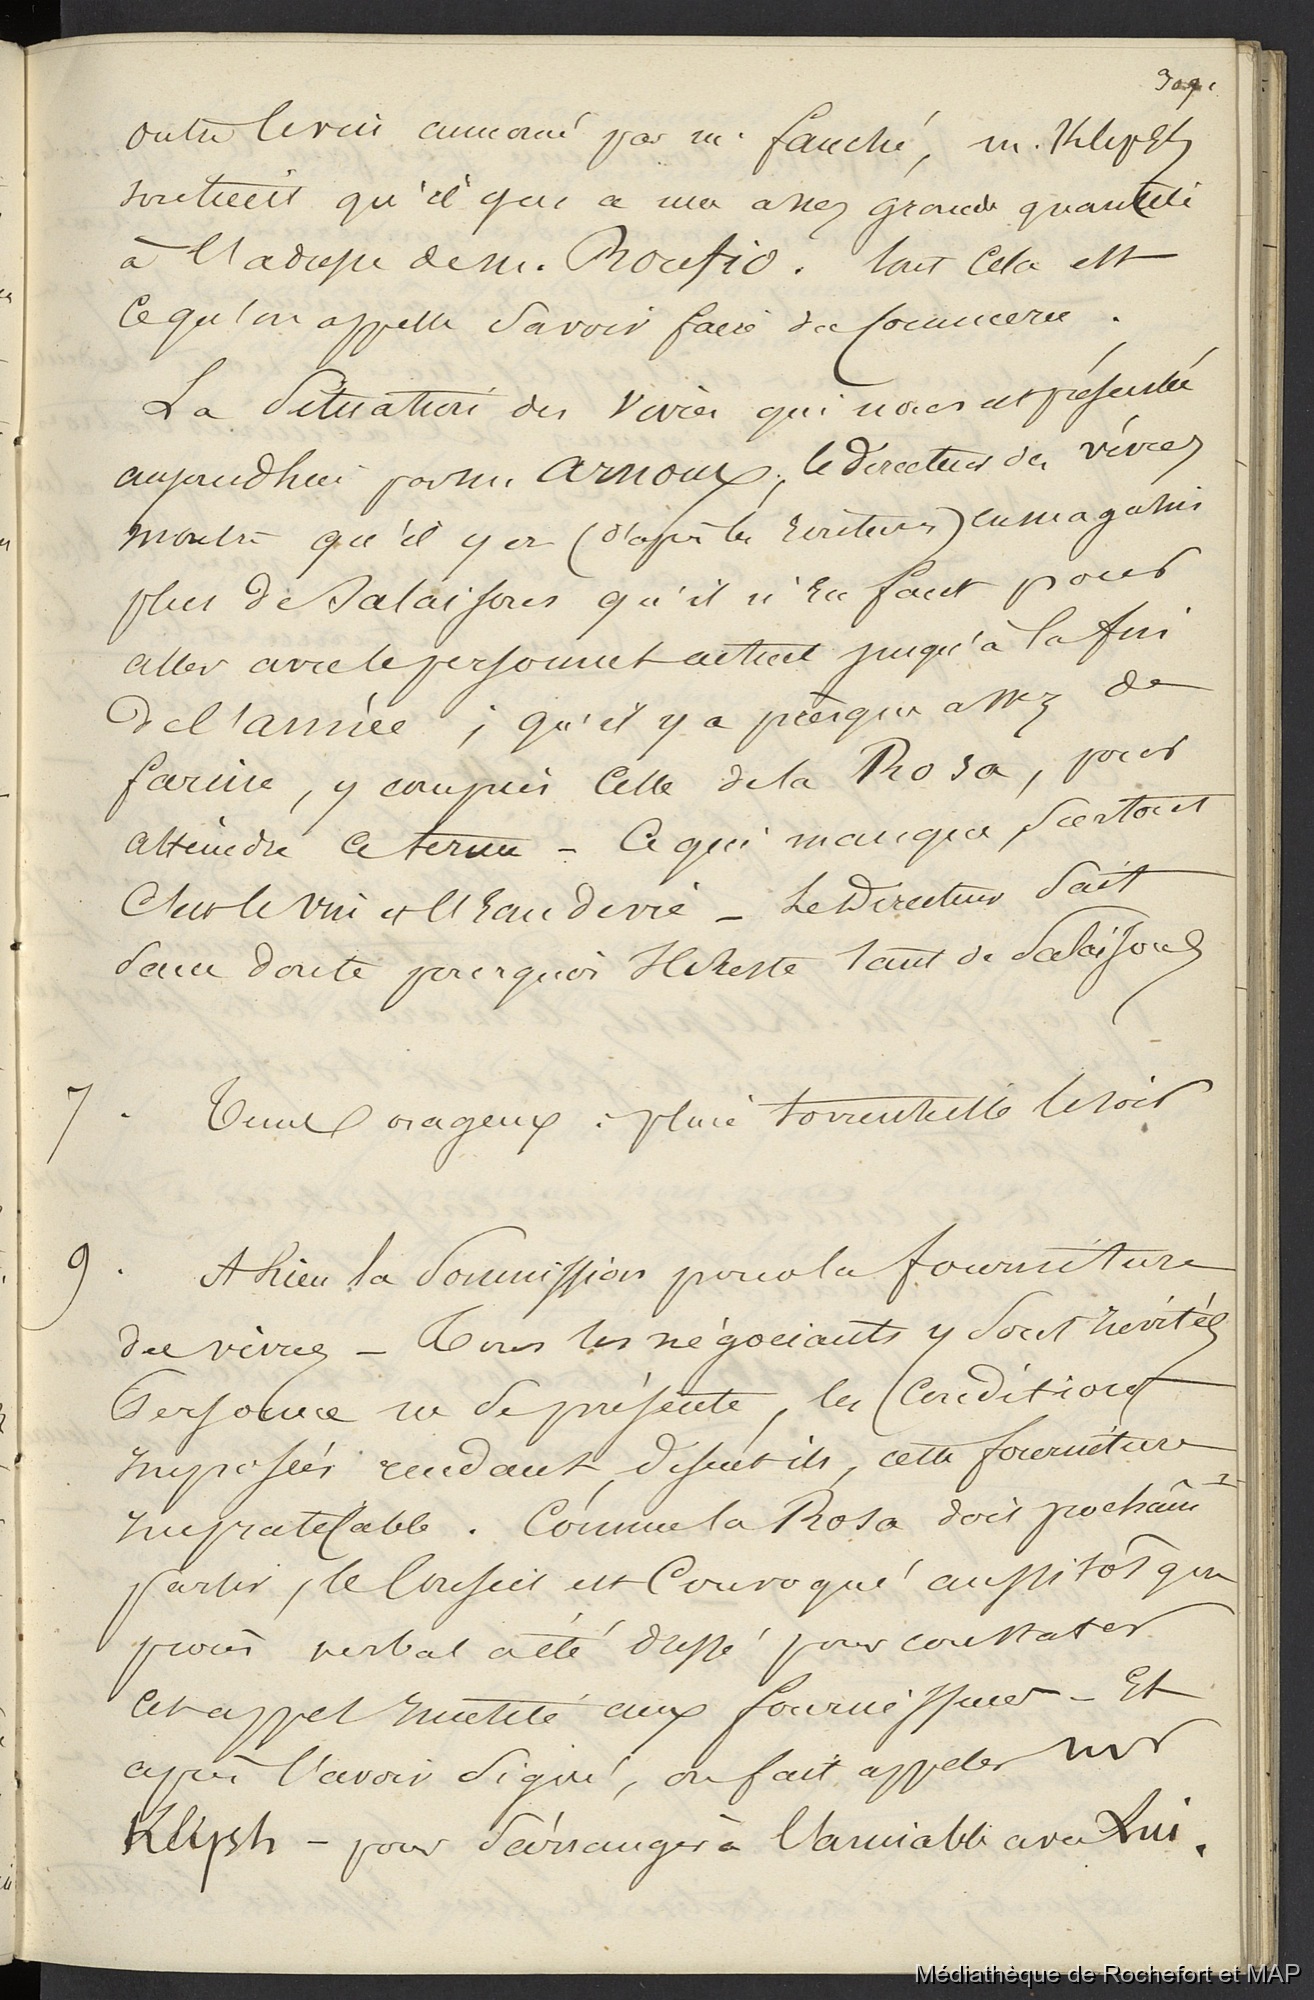 outre le vin annoncé par m. fauché, m. Klipsh
soutient qu'il y en a une assez grande quantité
à l'adresse de m. Roufio. tout cela est
ce qu'on appelle Savoir faire du Commerce.
La Situation des Vivres qui nous est présentée
aujourdhui par m. Arnoux, le directeur des vivres
montre qu'il y a (d'après les Écritures) en magasins
plus de Salaisons qu'il n'En faut pour
aller avec le personnel actuel jusqu'à la fin
de l'année ; qu'il y a presque assez de
farine, y compris Celle de la Rosa, pour
atteindre ce terme - Ce qui manque surtout
C'est le vin et l'Eau de vie - Le Directeur Sait
Sans doute pourquoi Il Reste tant de Salaisons
7. Temps orageux : pluie torrentielle le soir
9. A lieu la Soumission pour la fourniture
des vivres - Tous les négociants y Sont Invités
Personne ne Se présente, les Conditions
Imposées rendant, disent ils, cette fourniture
Impraticable. Comme la Rosa doit prochaint
partir, le Conseil est Convoqué aussitôt qu'un
procès verbal a été dressé pour constater
Cet appel Inutile aux fournisseurs - Et
après l'avoir Signé, on fait appeler mr
Klipsh - pour S'arranger à l'amiable avec Lui.
Médiathèque de Rochefort et MAP